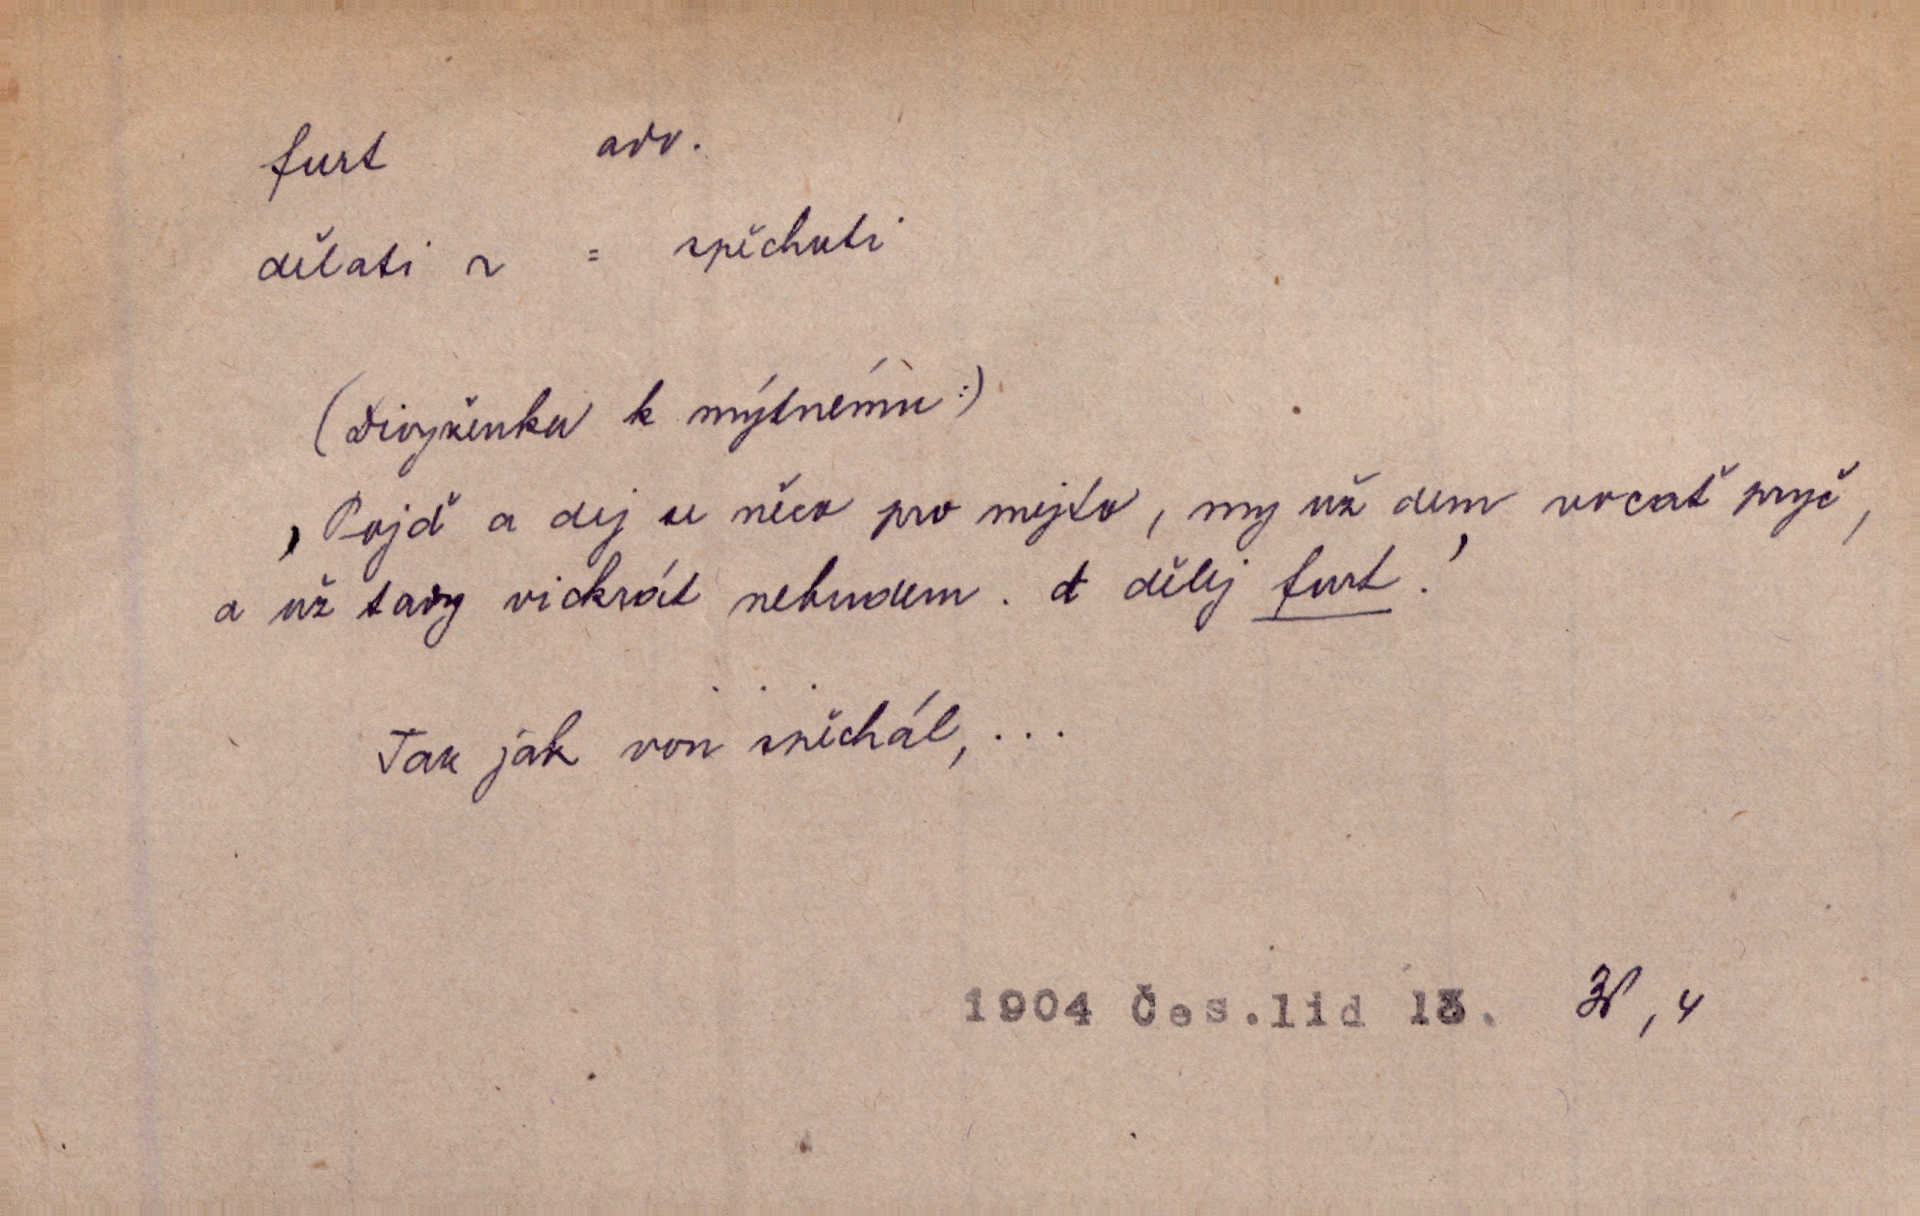 furt adv.
dělati ~ = spěchati
(Divyženka k mýtnému:)
‚Pojď a dej si něco pro mejto, my už dem vocať pryč,
a už tady vickrát nebudem. A dělej furt!‘
. . .
Tak jak von spěchál, ...
1904 Čes.lid 13. , 4